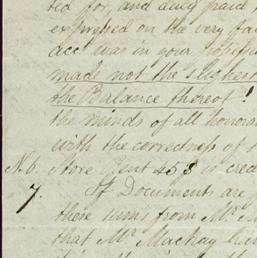 tied for, and duly paid
expressed on the very fa
acct was in your
made not the slighest
the Balance thereof!
the minds of all honora
with the correctness of
N.6. Store Rent 453 is cred
7. If Documents are
these sums from Mr. M
that Mr. Mackay ha